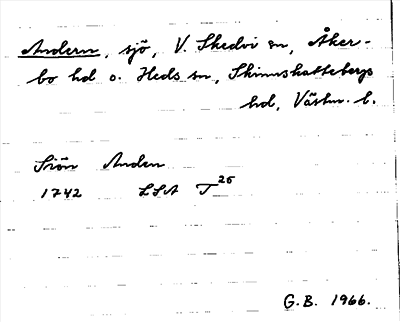 Andern, sjö, V. Skedvi sn, Åker-
bo hd o. Heds sn, Skinnskattebergs
hd, Västm. l.
Siön Anden
1742 LSA T 25
G.B. 1966.